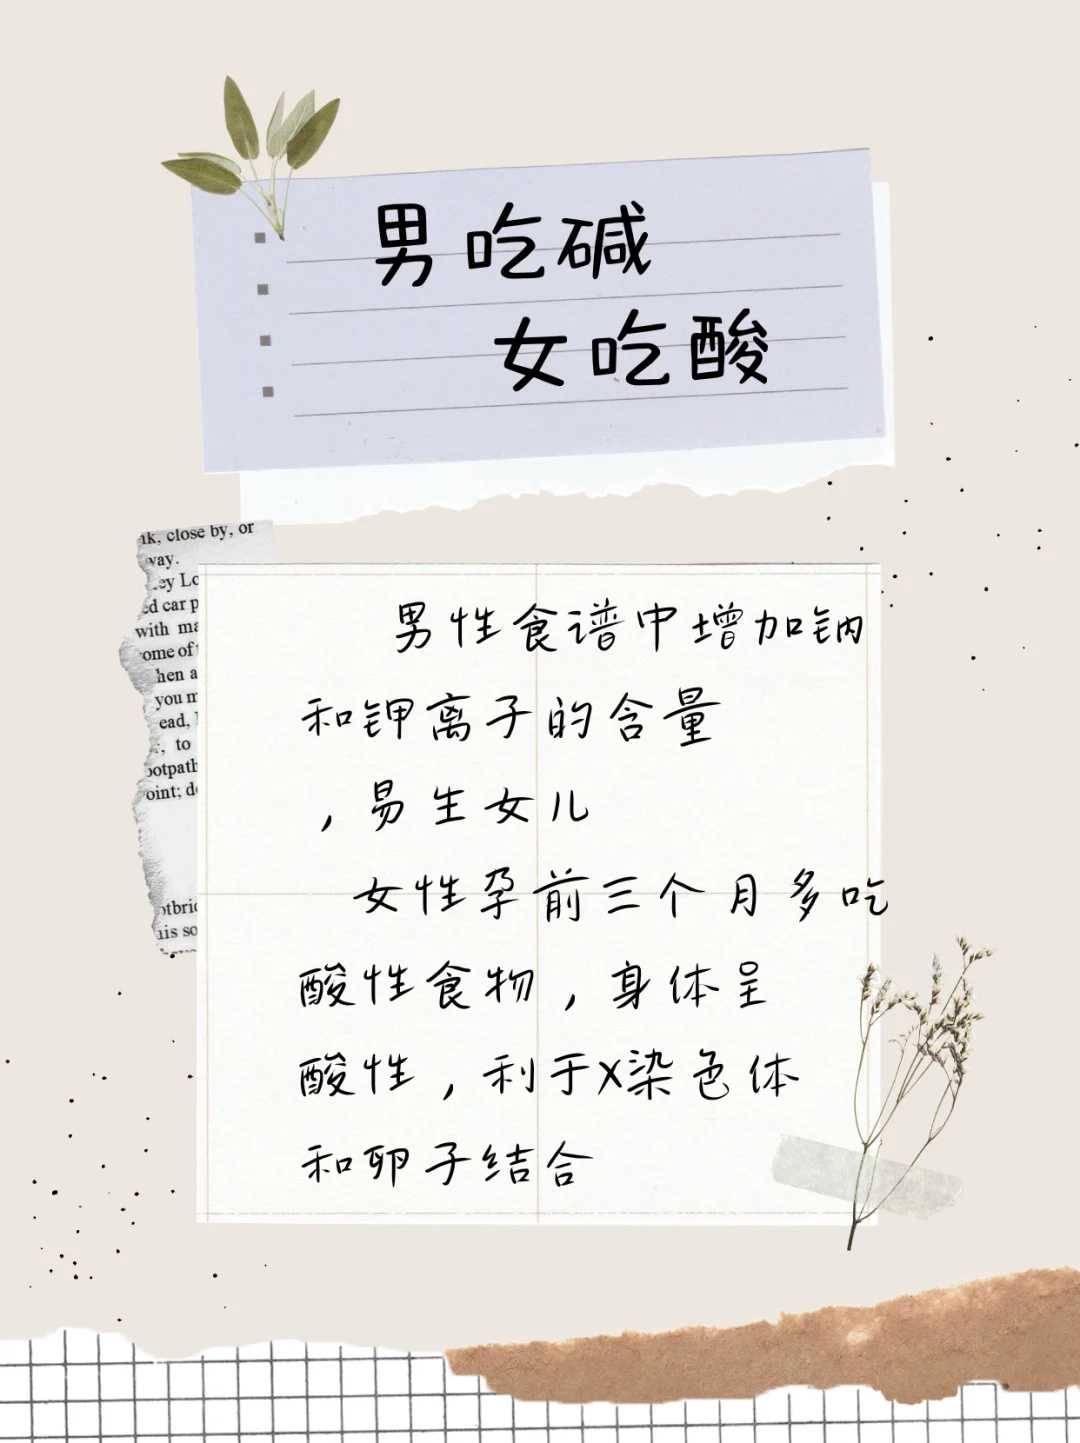 男吃碱
女吃酸
nk, close by, or
way.
ey Lo
ed car p
with ma
ome of
hen a
you m
ead,
, to
ootpath
oint; d
otbri
his so
男性食谱中增加钠
和钾离子的含量
，易生女儿
女性孕前三个月多吃
酸性食物，身体呈
酸性，利于X染色体
和卵子结合